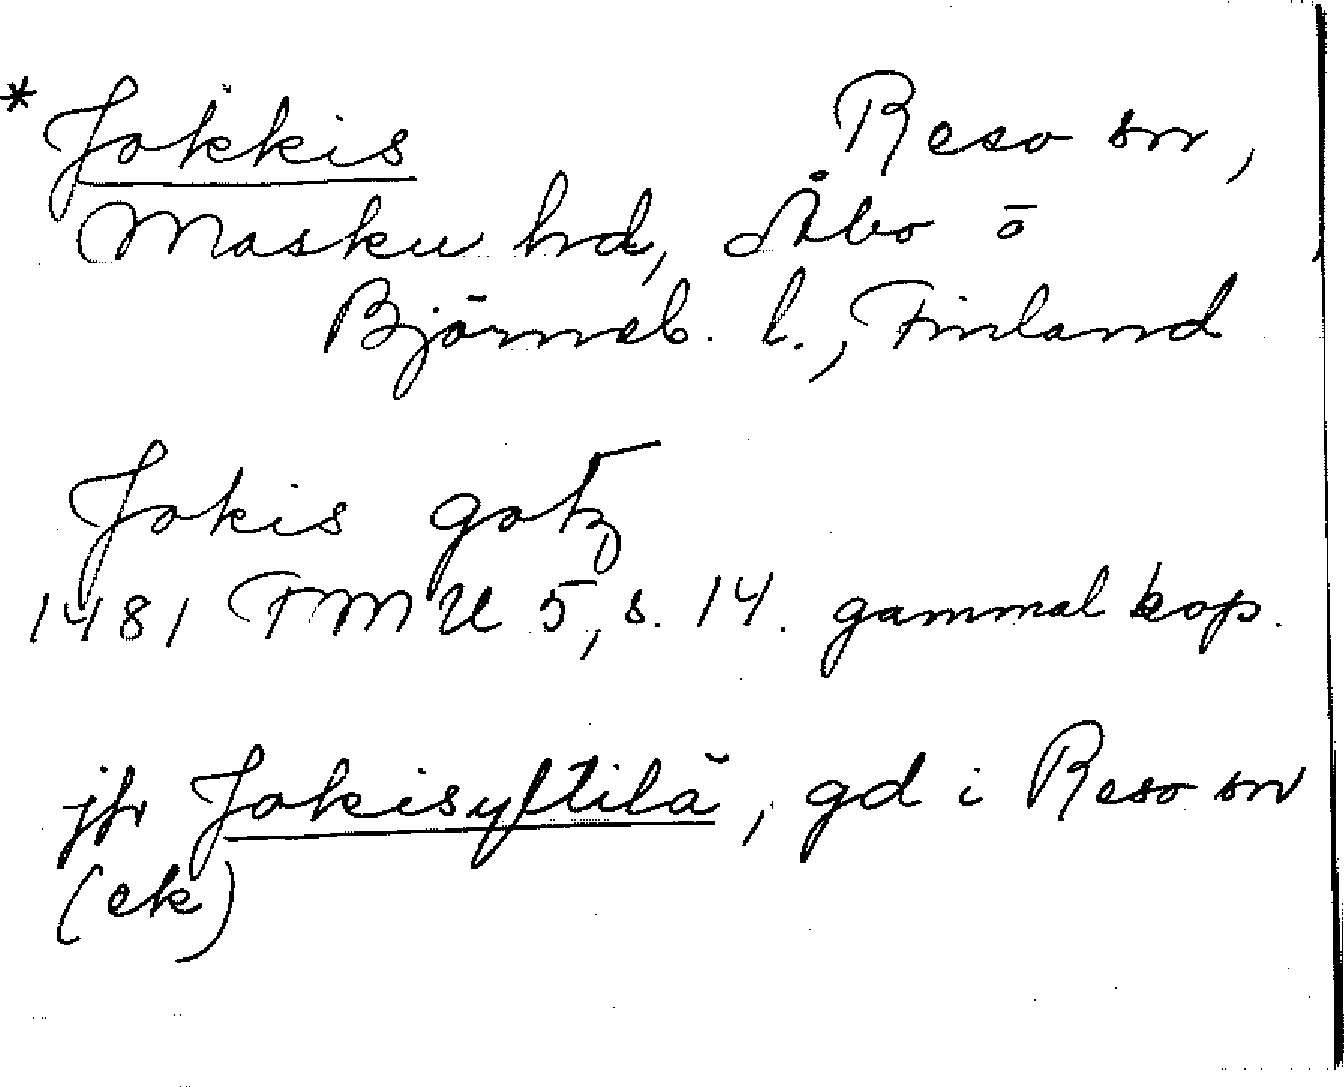 * Jokkis Reso sn,
Masku hd, Åbo o
Björneb. l., Finland
Jokis gotz
1481 FMU 5, s. 14. gammal kop.
jfr Jokisyltilä, gd i Reso sn
(ek)